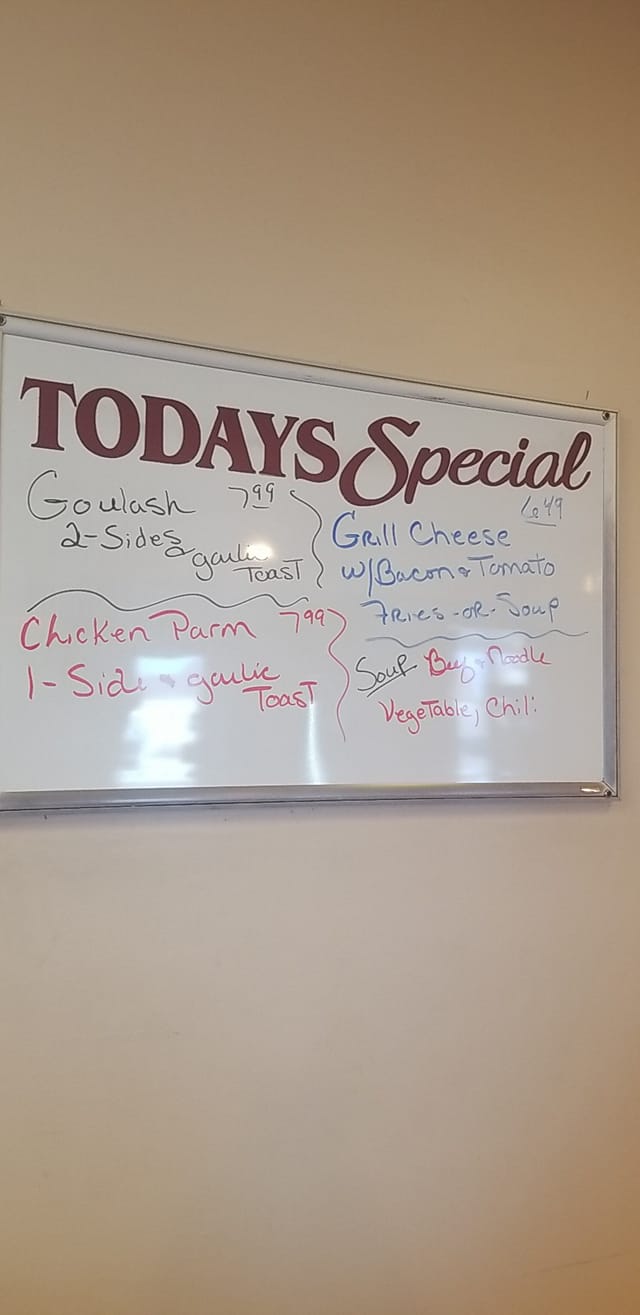 TODAYS Special
Goulash 7 99
2-Sides
& garlic
Toast
Chicken Parm 7 99
1-Side & garlic
Toast
6 49
Grill Cheese
w/Bacon & Tomato
Fries-or-Soup
Soup Beef & Noodle
Vegetable, Chili